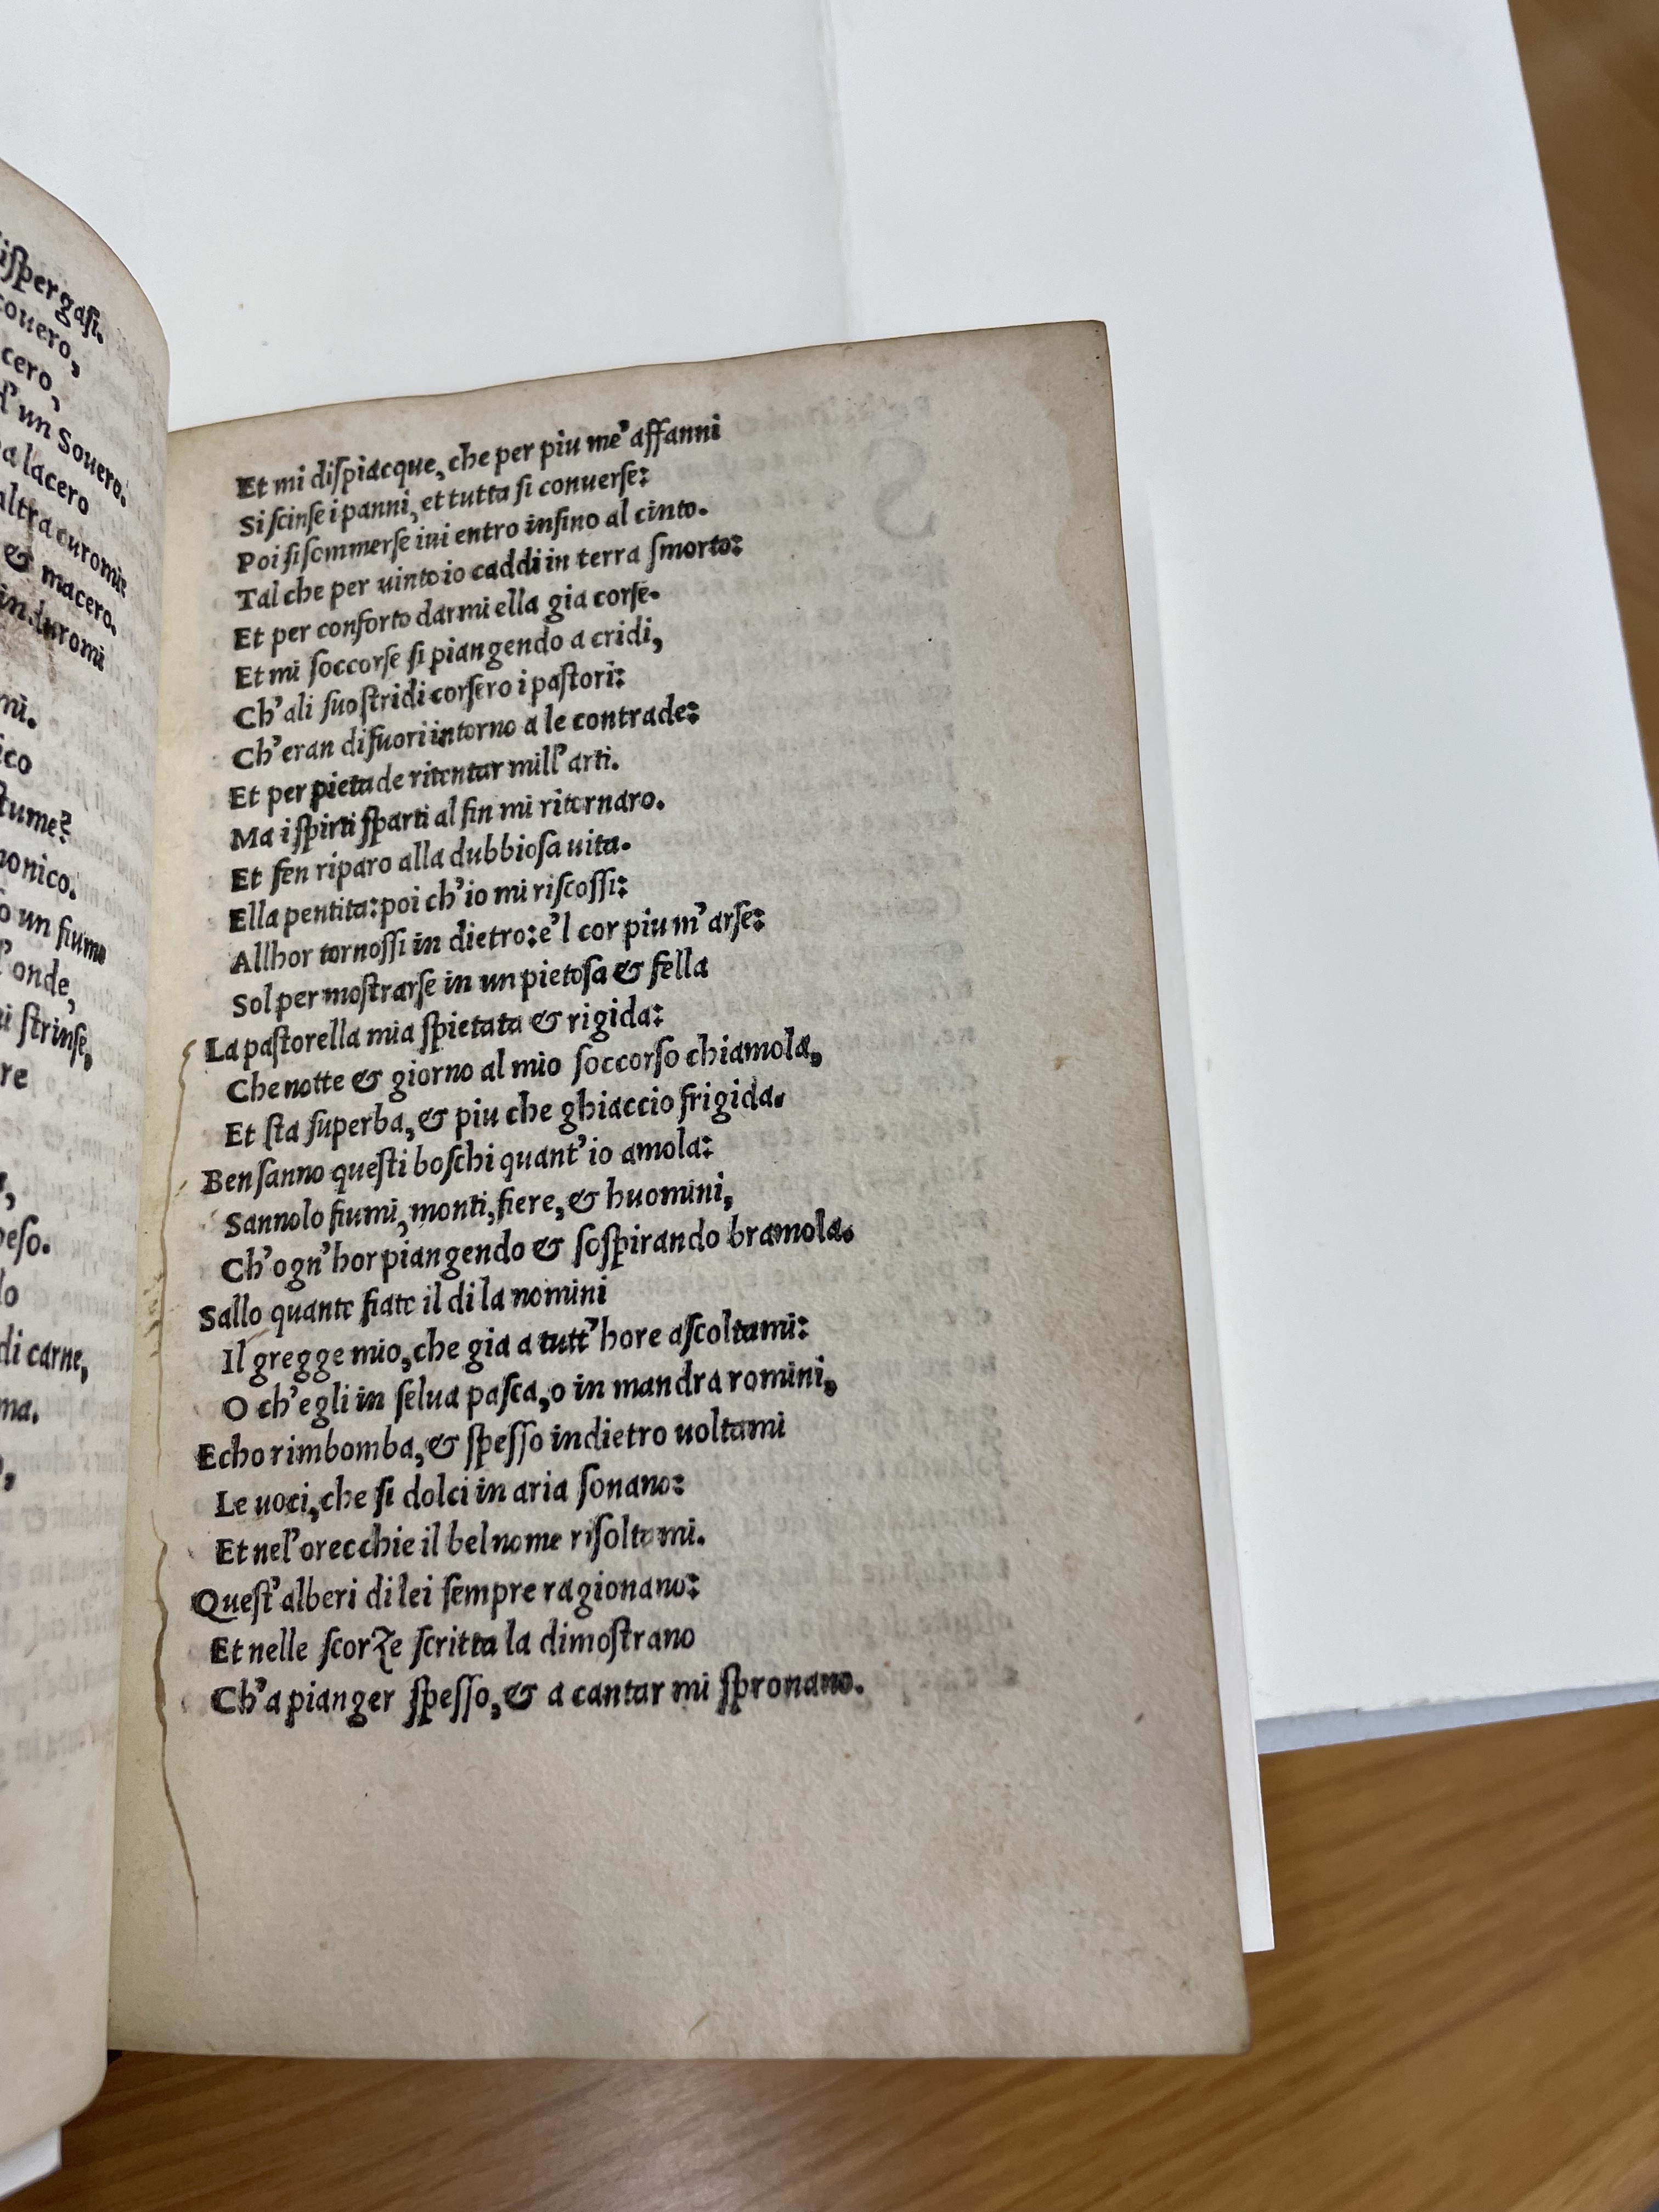 iſpergaſi.
couero,
cero,
d'un Souero.
a lacero
altra curomi:
& macero.
induromi
mi.
ico
tume?
monico.
o un fiume
l'onde,
i ſtrinſe,
re
peſo.
lo
di carne,
ma.
Et mi diſpiacque, che per piu me' affanni
Si ſcinſe i panni, et tutta ſi conuerſe:
Poi ſi ſommerſe iui entro inſino al cinto.
Tal che per uinto io caddi in terra ſmorto:
Et per conforto darmi ella gia corſe.
Et mi ſoccorſe ſi piangendo a cridi,
Ch'ali ſuo ſtridi corſero i paſtori:
Ch'eran di fuori intorno a le contrade:
Et per pietade ritentar mill'arti.
Ma i ſpirti ſparti al fin mi ritornaro.
Et fen riparo alla dubbioſa uita.
Ella pentita: poi ch'io mi riſcoſſi:
Allhor tornoſſi in dietro: e'l cor piu m'arſe:
Sol per moſtrarſe in un pietoſa & fella
La paſtorella mia ſpietata & rigida:
Che notte & giorno al mio ſoccorſo chiamola,
Et ſta ſuperba, & piu che ghiaccio frigida.
Ben ſanno queſti boſchi quant'io amola:
Sannolo fiumi, monti, fiere, & huomini,
Ch'ogn'hor piangendo & ſoſpirando bramola.
Sallo quante fiate il di la nomini
Il gregge mio, che gia a tutt'hore aſcoltami:
O ch'egli in ſelua paſca, o in mandra romini,
Echo rimbomba, & ſpeſſo indietro uoltami
Le uoci, che ſi dolci in aria ſonano:
Et nel'orecchie il bel nome riſoltami.
Queſt'alberi di lei ſempre ragionano:
Et nelle ſcorze ſcritta la dimoſtrano
Ch'a pianger ſpeſſo, & a cantar mi ſpronano.